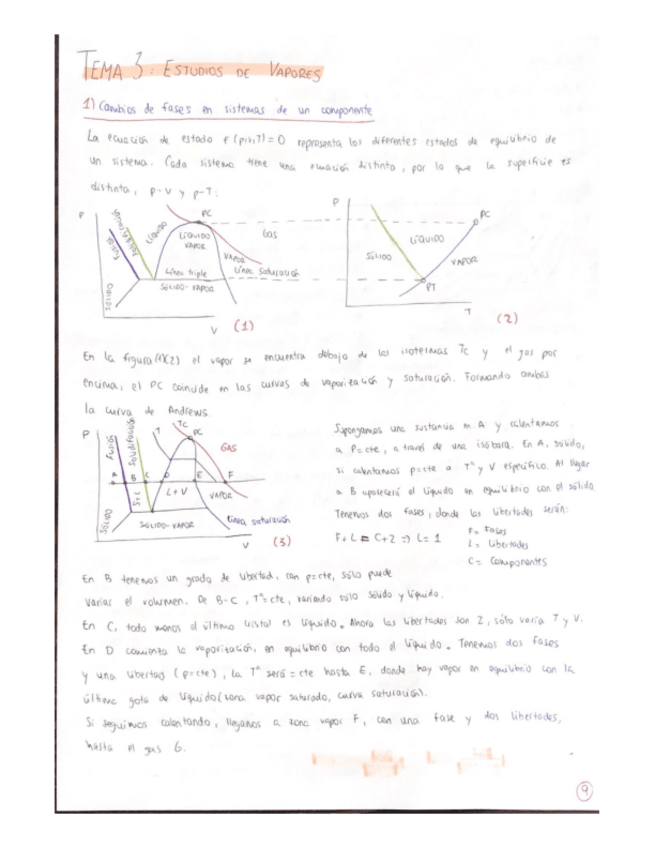 TEMA 3: ESTUDIOS DE VAPORES
1) Cambios de fases en sistemas de un componente
La ecuación de estado f(p,v,T)=0 representa los diferentes estados de equilibrio de
un sistema. Cada sistema tiene una ecuación distinta, por lo que la superficie es
distinta, p-V y p-T:
P
FUSIÓN
SOLIDIFICACIÓN
LÍQUIDO
PC
LÍQUIDO
VAPOR
GAS
VAPOR
Línea triple
Línea saturación
SÓLIDO
SÓLIDO-VAPOR
V
(1)
P
PC
LÍQUIDO
SÓLIDO
VAPOR
PT
T
(2)
En la figura (1)(2) el vapor se encuentra debajo de las isotermas Tc y el gas por
encima, el PC coincide en las curvas de vaporización y saturación. Formando ambas
la curva de Andrews.
P
FUSIÓN
SOLIDIFICACIÓN
T
TC
PC
GAS
A
B
C
D
E
F
S+L
L+V
VAPOR
SÓLIDO
SÓLIDO-VAPOR
Línea saturación
V
(3)
Supongamos una sustancia m. A y calentamos
a P=cte, a través de una isóbara. En A, sólido,
si calentamos p=cte a Tª y V específico. Al llegar
a B aparecerá el líquido en equilibrio con el sólido.
Tenemos dos fases, donde las libertades serán:
F+L = C+2 => L=1
F= Fases
L= Libertades
C= Componentes
En B tenemos un grado de libertad, con p=cte, sólo puede
variar el volumen. De B-C, Tª=cte, variando sólo sólido y líquido.
En C, todo menos el último cristal es líquido. Ahora las libertades son 2, sólo varía T y V.
En D comienza la vaporización, en equilibrio con todo el líquido. Tenemos dos fases
y una libertad (p=cte), la Tª será=cte hasta E, donde hay vapor en equilibrio con la
última gota de líquido (zona vapor saturado, curva saturación).
Si seguimos calentando, llegamos a zona vapor F, con una fase y dos libertades,
hasta el gas G.
9